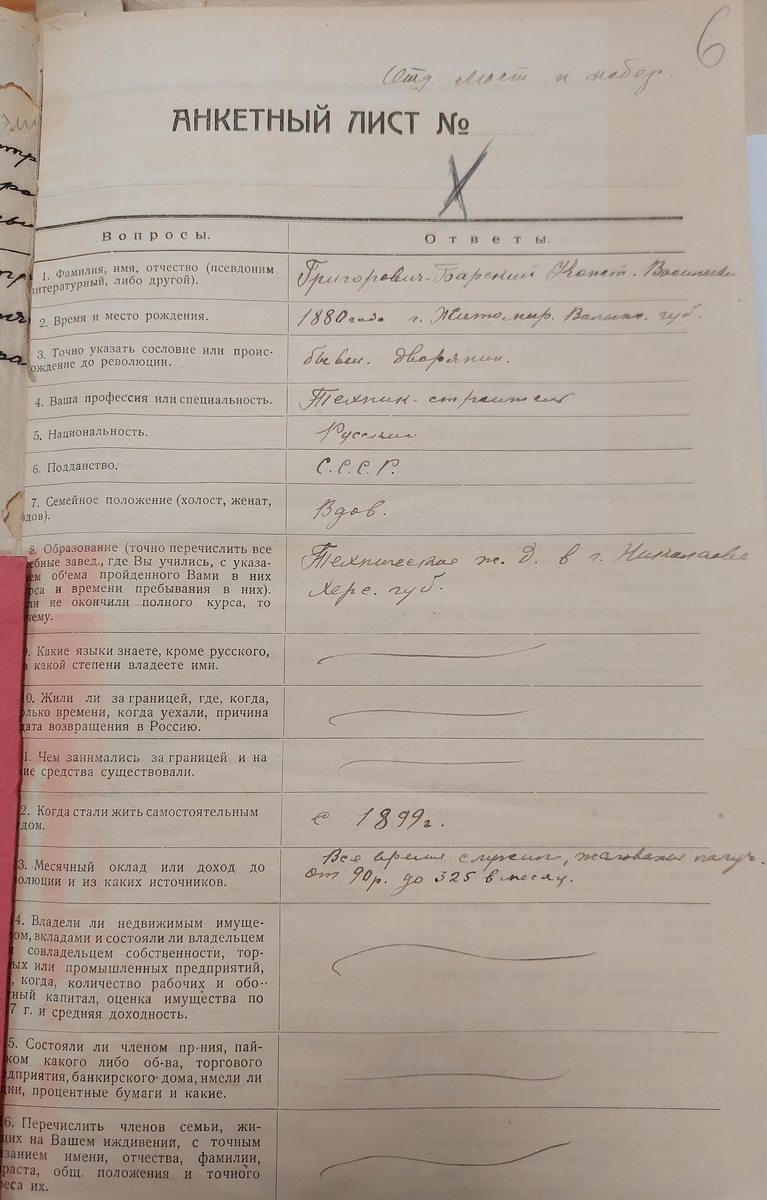 6
Отд. мост и набер.
АНКЕТНЫЙ ЛИСТ №
Х
Вопросы.
Ответы.
1. Фамилия, имя, отчество (псевдоним
литературный, либо другой).
Григорович-Барский Конст. Васильев
2. Время и место рождения.
1880 года г. Житомир. Волынс. губ.
3. Точно указать сословие или проис-
ождение до революции.
бывш. дворянин.
4. Ваша профессия или специальность.
Техник-строитель
5. Национальность.
Русский
6. Подданство.
С.С.С.Р.
7. Семейное положение (холост, женат,
дов).
Вдов.
8. Образование (точно перечислить все
ебные завед., где Вы учились, с указа-
ем об'ема пройденного Вами в них
рса и времени пребывания в них).
ли не окончили полного курса, то
чему.
Техническое ж. д. в г. Николаеве
Херс. губ.
9. Какие языки знаете, кроме русского,
в какой степени владеете ими.
0. Жили ли за границей, где, когда,
лько времени, когда уехали, причина
дата возвращения в Россию.
1. Чем занимались за границей и на
ие средства существовали.
2. Когда стали жить самостоятельным
дом.
с 1899 г.
3. Месячный оклад или доход до
олюции и из каких источников.
Все время служил, жалованья получ.
от 90 р. до 325 в месяц.
4. Владели ли недвижимым имуще-
ом, вкладами и состояли ли владельцем
совладельцем собственности, тор-
ых или промышленных предприятий,
, когда, количество рабочих и обо-
тный капитал, оценка имущества по
7 г. и средняя доходность.
5. Состояли ли членом пр-ния, пай-
ком какого либо об-ва, торгового
дприятия, банкирского дома, имели ли
ции, процентные бумаги и какие.
6. Перечислить членов семьи, жи-
щих на Вашем иждивении, с точным
занием имени, отчества, фамилии,
раста, общ. положения и точного
реса их.